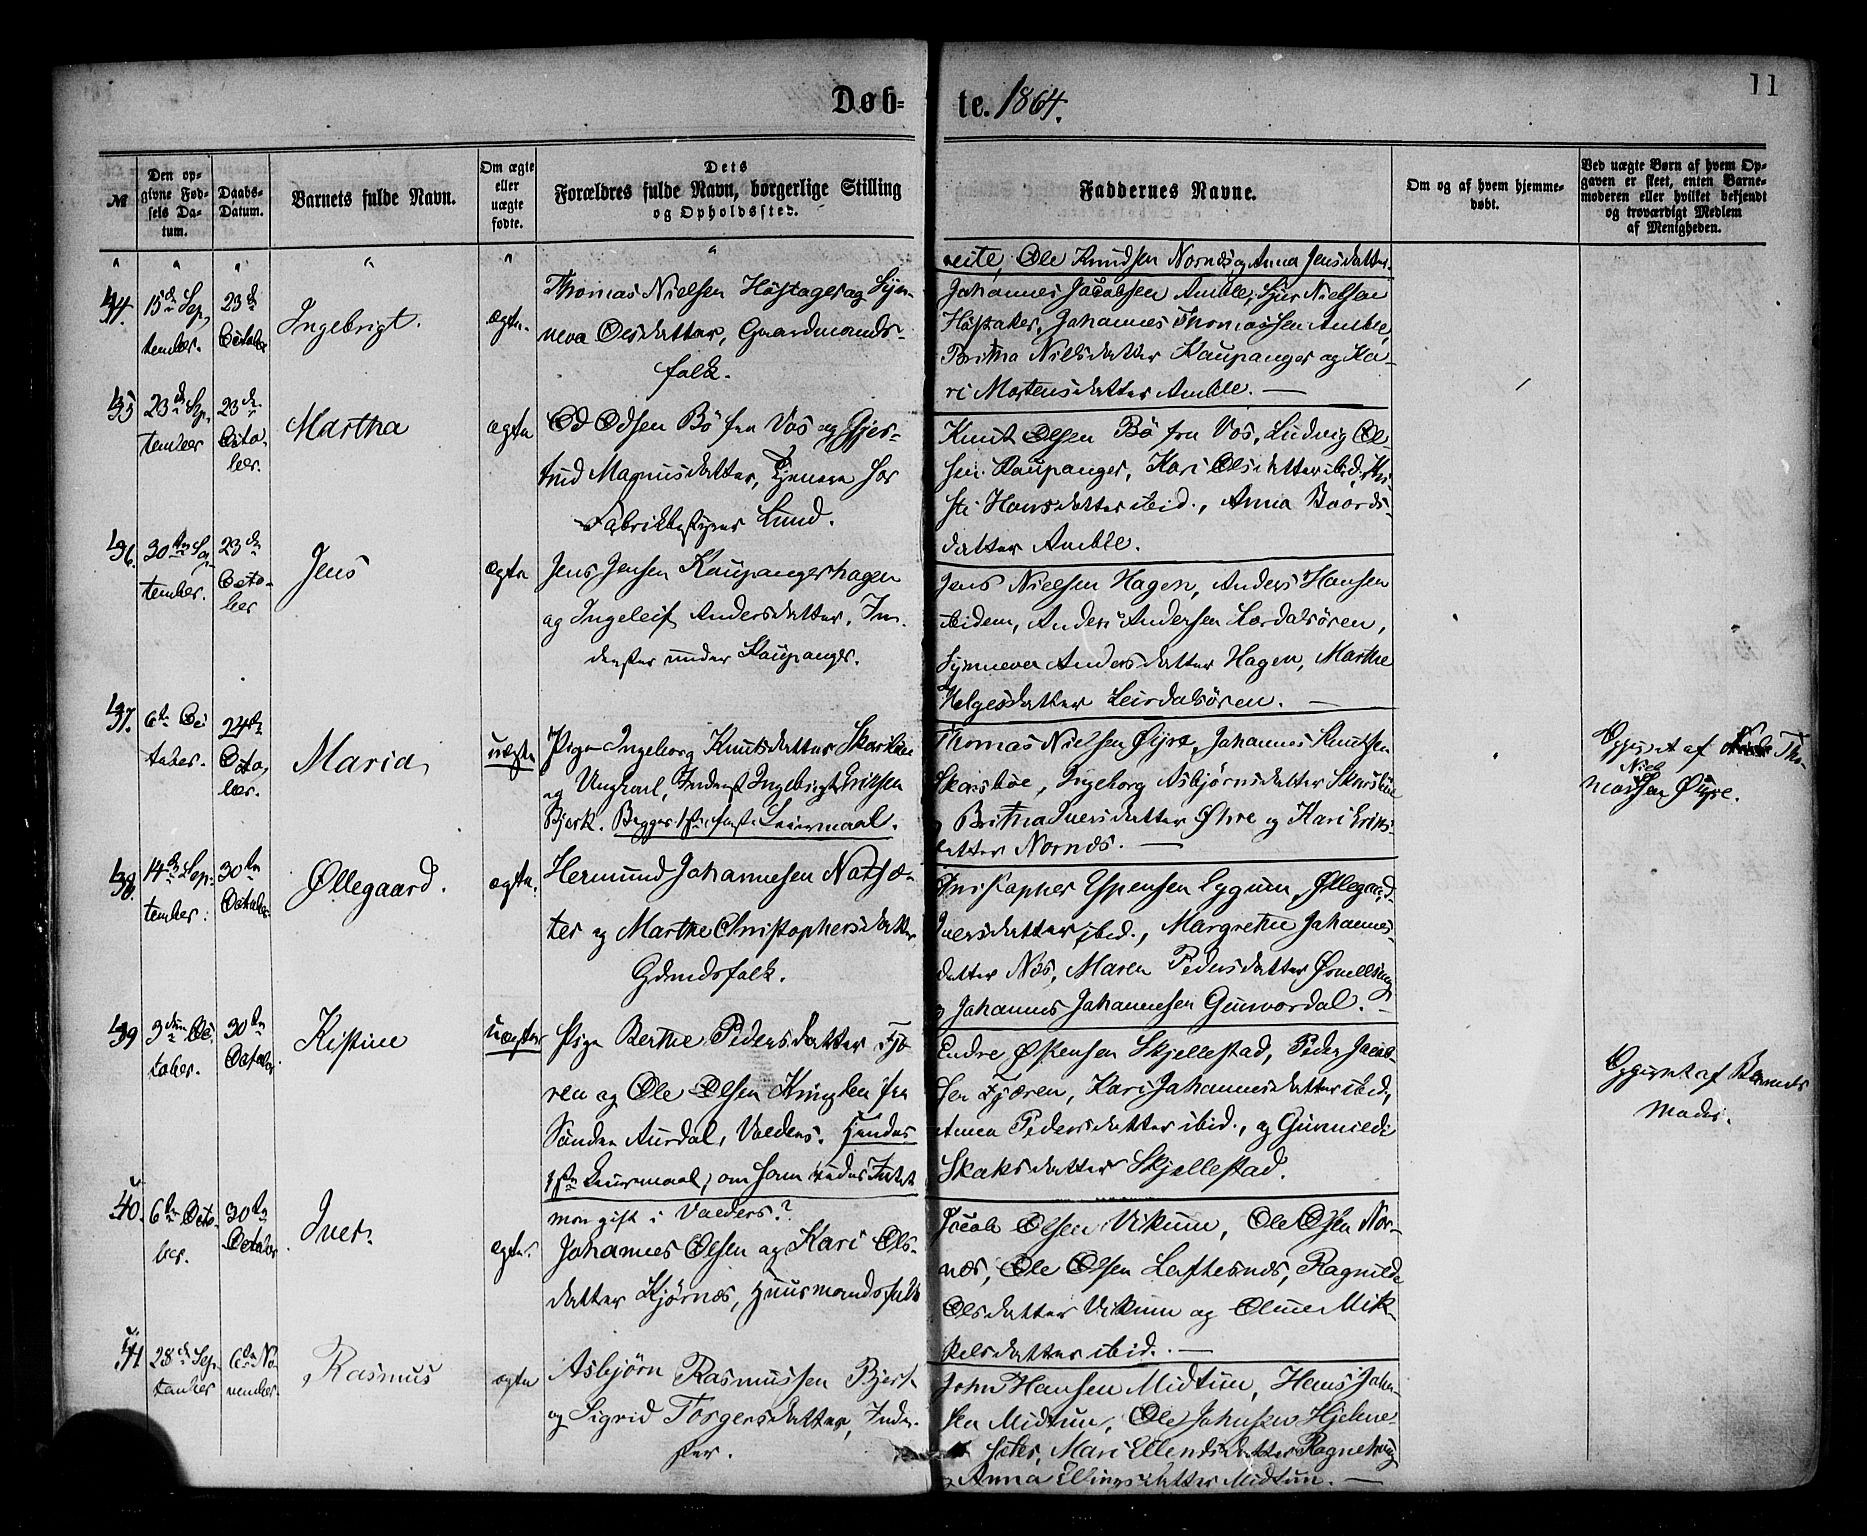 11
Døb-
te. 1864.
№
Den opgivne Fødsels Datum.
Daabs-Datum.
Barnets fulde Navn.
Om ægte eller uægte fødte.
Dets
Forældres fulde Navn, borgerlige Stilling
og Opholdssted.
Faddernes Navne.
Om og af hvem hjemmedøbt.
Ved uægte Børn af hvem Opgaven er skeet, enten Barnemoderen eller hvilket bekjendt og troværdigt Medlem af Menigheden.
" " " " " "
Ole Knudsen Nornæs og Anna Jensdatter.
15de September.
23de October
Ingebrigt.
ægte.
Thomas Nielsen Høstager og Syn-
neva Olsdatter, Gaardmands-
folk.
Johannes Jacobsen Amble, Sjur Nielsen
Høstaker, Johannes Thomassen Amble,
Britha Nielsdatter Kaupanger og Ka-
ri Mortensdatter Amble. —
23de September
23de October.
Martha
ægte
Od Odsen Bø fra Vos og Gjer-
trud Magnusdatter, tjenere hos
Fabrikbestyrer Lund.
Knut Olsen Bø fra Vos, Ludvig Ol-
sen Kaupanger, Kari Olsdatter ibid, Kri-
sti Hansdatter ibid., Anna Baards-
datter Amble.
36.
30te September.
23de October
Jens
ægte
Jens Jensen Kaupangerhagen
og Ingeleif Andersdatter, In-
derster under Kaupanger.
Jens Nielsen Hagen, Anders Hansen
ibidem, Anders Andersen Lærdalsøren,
Synneva Andersdatter Hagen, Marthe
Helgesdatter Leirdalsøren. —
37.
6te October.
24de October.
Maria
uægte
Pige Ingeborg Knutsdatter Skarsbøe
og Ungkarl, Inderst Ingebrigt Erichsen
Bjerk. Begges 1ste Leiermaal.
Thomas Nielsen Øyre, Johannes Knutsen
Skarsbøe, Ingeborg Asbjørnsdatter Skarsbøe
Britha Iversdatter Øhre og Kari Eriks-
datter Nornæs. —
Opgivet af Tho-
mas Nielsen Øyre.
38.
14de September.
30te October
Øllegaard.
ægte.
Hermund Johannesen Natsæ-
ter og Marthe Christophersdatter
Gdmdsfolk.
Christopher Espensen Eggum, Øllegaard
Iversdatter ibid., Margrethe Johannes-
datter Næs, Maren Pedersdatter
og Johannes Johannesen Gunvordal. —
39
October.
30te October.
Kistine
uægte
Pige Berthe Pedersdatter Fjæ-
ren og Ole Olsen fra
Søndre Aurdal, Valders. Hendes
1ste Leiermaal, om ham vides Intet
mon gift i Valders?
Endre Østensen Skjellestad, Peder Jacob-
sen Fjæren, Kari Johannesdatter ibid,
Anna Pedersdatter ibid., og Gunnild
Skaksdatter Skjellestad.
Opgivet af Barnets
Moder.
40.
6te October.
30te October
Iver.
ægte.
Johannes Olsen og Kari Ols-
datter Kjørnæs, Huusmandsfolk
Jacob Olsen Vikum, Ole Olsen Nor-
næs, Ole Olsen Loftesnæs, Ragnilde
Olsdatter Vikum og Oline Mik-
kelsdatter ibid. —
41
28de September
6te November.
Rasmus
ægte
Asbjørn Rasmussen Bjerk
og Sigrid Torgersdatter, Inder-
ster.
John Hansen Midtun, Hans John-
sen Midtun, Ole Johnsen Hjelme-
seter, Mari Ellendsdatter
Anna Ellingsdatter Midtun. —